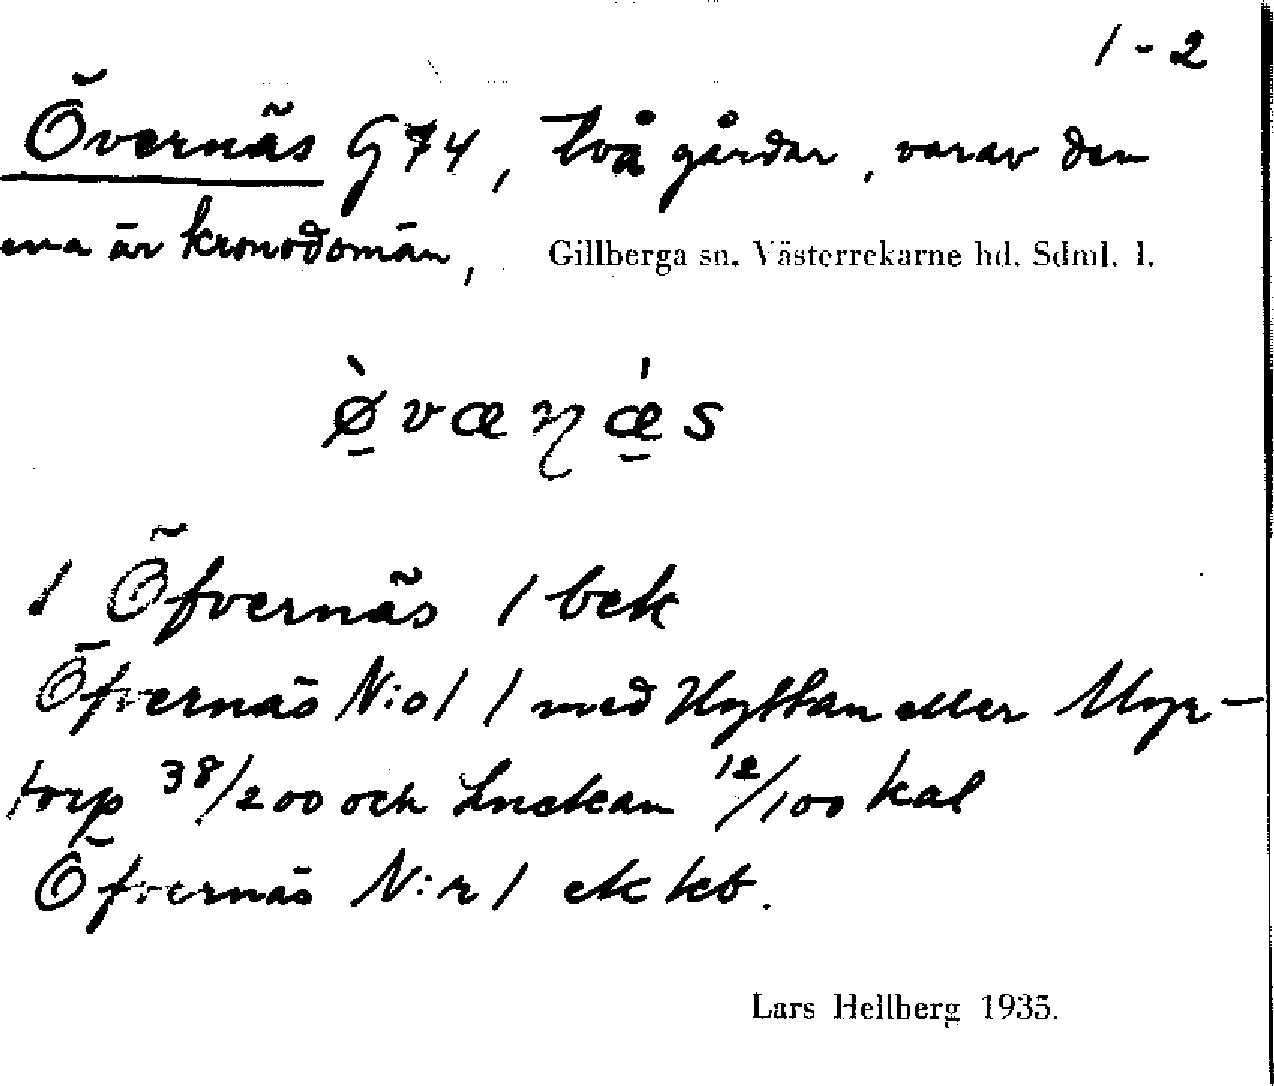 1-2
Övernäs G74, två gårdar, varav den
ena är kronodomän, Gillberga sn. Västerrekarne hd. Sdml. l.
ø̀væɳǽs
1 Öfvernäs 1 bek
Öfvernäs N:o1 1 med Hyttan eller Myr-
torp 38/200 och Luckan 12/100 kal
Öfvernäs N:r 1 ek kb.
Lars Hellberg 1935.